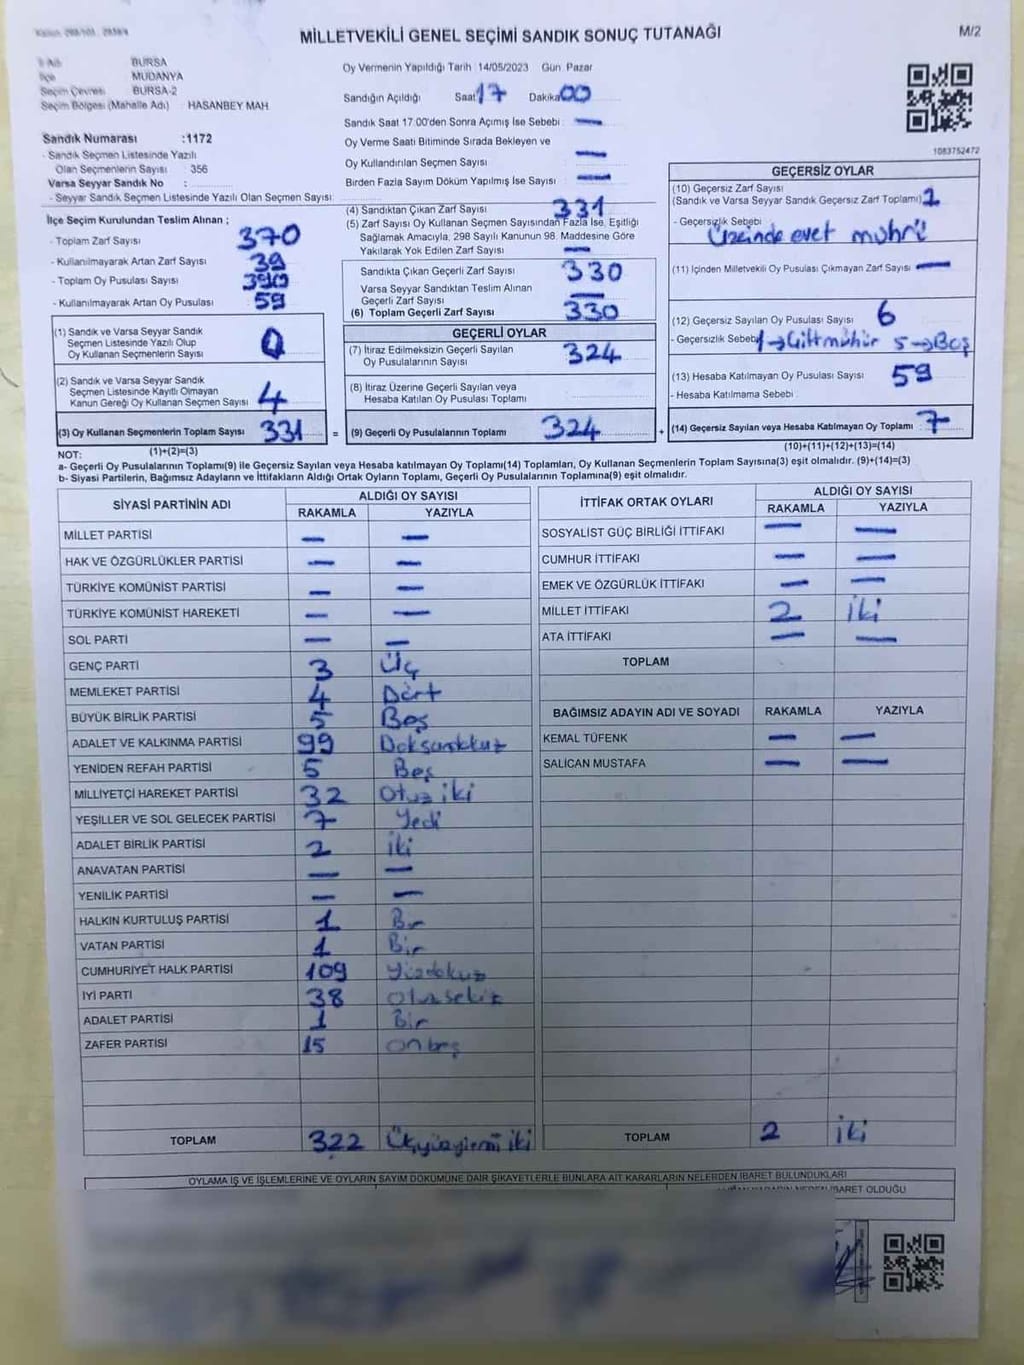 MİLLETVEKİLİ GENEL SEÇİMİ SANDIK SONUÇ TUTANAĞI
M/2
İl Adı : BURSA
İlçe MUDANYA
Seçim Çevresi BURSA-2
Seçim Bölgesi (Mahalle Adı) HASANBEY MAH
Sandık Numarası :1172
- Sandık Seçmen Listesinde Yazılı
Olan Seçmenlerin Sayısı : 356
Varsa Seyyar Sandık No :
- Seyyar Sandık Seçmen Listesinde Yazılı Olan Seçmen Sayısı:
Oy Vermenin Yapıldığı Tarih 14/05/2023 Gün Pazar
Sandığın Açıldığı Saat 17 Dakika 00
Sandık Saat 17.00'den Sonra Açımış İse Sebebi : —
Oy Verme Saati Bitiminde Sırada Bekleyen ve
Oy Kullandırılan Seçmen Sayısı : —
Birden Fazla Sayım Döküm Yapılmış İse Sayısı : —
1083752472
İlçe Seçim Kurulundan Teslim Alınan ;
- Toplam Zarf Sayısı 370
- Kullanılmayarak Artan Zarf Sayısı 39
- Toplam Oy Pusulası Sayısı 390
- Kullanılmayarak Artan Oy Pusulası 59
(1) Sandık ve Varsa Seyyar Sandık
Seçmen Listesinde Yazılı Olup
Oy Kullanan Seçmenlerin Sayısı
(2) Sandık ve Varsa Seyyar Sandık
Seçmen Listesinde Kayıtlı Olmayan
Kanun Gereği Oy Kullanan Seçmen Sayısı 4
(3) Oy Kullanan Seçmenlerin Toplam Sayısı 331
(1)+(2)=(3)
(4) Sandıktan Çıkan Zarf Sayısı 331
(5) Zarf Sayısı Oy Kullanan Seçmen Sayısından Fazla İse, Eşitliği
Sağlamak Amacıyla, 298 Sayılı Kanunun 98. Maddesine Göre
Yakılarak Yok Edilen Zarf Sayısı : —
Sandıkta Çıkan Geçerli Zarf Sayısı 330
Varsa Seyyar Sandıktan Teslim Alınan
Geçerli Zarf Sayısı —
(6) Toplam Geçerli Zarf Sayısı 330
GEÇERLİ OYLAR
(7) İtiraz Edilmeksizin Geçerli Sayılan
Oy Pusulalarının Sayısı 324
(8) İtiraz Üzerine Geçerli Sayılan veya
Hesaba Katılan Oy Pusulası Toplamı
= (9) Geçerli Oy Pusulalarının Toplamı 324
GEÇERSİZ OYLAR
(10) Geçersiz Zarf Sayısı
(Sandık ve Varsa Seyyar Sandık Geçersiz Zarf Toplamı) 1
- Geçersizlik Sebebi
Üzerinde evet mührü
(11) İçinden Milletvekili Oy Pusulası Çıkmayan Zarf Sayısı —
(12) Geçersiz Sayılan Oy Pusulası Sayısı 6
- Geçersizlik Sebebi 1→Çift mühür 5→Boş
(13) Hesaba Katılmayan Oy Pusulası Sayısı 59
- Hesaba Katılmama Sebebi
+ (14) Geçersiz Sayılan veya Hesaba Katılmayan Oy Toplamı 7
(10)+(11)+(12)+(13)=(14)
NOT:
a- Geçerli Oy Pusulalarının Toplamı(9) ile Geçersiz Sayılan veya Hesaba katılmayan Oy Toplamı(14) Toplamları, Oy Kullanan Seçmenlerin Toplam Sayısına(3) eşit olmalıdır. (9)+(14)=(3)
b- Siyasi Partilerin, Bağımsız Adayların ve İttifakların Aldığı Ortak Oyların Toplamı, Geçerli Oy Pusulalarının Toplamına(9) eşit olmalıdır.
SİYASİ PARTİNİN ADI ALDIĞI OY SAYISI
RAKAMLA YAZIYLA
MİLLET PARTİSİ — —
HAK VE ÖZGÜRLÜKLER PARTİSİ — —
TÜRKİYE KOMÜNİST PARTİSİ — —
TÜRKİYE KOMÜNİST HAREKETİ — —
SOL PARTİ — —
GENÇ PARTİ 3 Üç
MEMLEKET PARTİSİ 4 Dört
BÜYÜK BİRLİK PARTİSİ 5 Beş
ADALET VE KALKINMA PARTİSİ 99 Doksandokuz
YENİDEN REFAH PARTİSİ 5 Beş
MİLLİYETÇİ HAREKET PARTİSİ 32 Otuz iki
YEŞİLLER VE SOL GELECEK PARTİSİ 7 Yedi
ADALET BİRLİK PARTİSİ 2 iki
ANAVATAN PARTİSİ — —
YENİLİK PARTİSİ — —
HALKIN KURTULUŞ PARTİSİ 1 Bir
VATAN PARTİSİ 1 Bir
CUMHURİYET HALK PARTİSİ 109 Yüzdokuz
İYİ PARTİ 38 Otuzsekiz
ADALET PARTİSİ 1 Bir
ZAFER PARTİSİ 15 Onbeş
TOPLAM 322 Üçyüzyirmi iki
İTTİFAK ORTAK OYLARI ALDIĞI OY SAYISI
RAKAMLA YAZIYLA
SOSYALİST GÜÇ BİRLİĞİ İTTİFAKI — —
CUMHUR İTTİFAKI — —
EMEK VE ÖZGÜRLÜK İTTİFAKI — —
MİLLET İTTİFAKI 2 İki
ATA İTTİFAKI — —
TOPLAM
BAĞIMSIZ ADAYIN ADI VE SOYADI RAKAMLA YAZIYLA
KEMAL TÜFENK — —
SALİCAN MUSTAFA — —
TOPLAM 2 İki
OYLAMA İŞ VE İŞLEMLERİNE VE OYLARIN SAYIM DÖKÜMÜNE DAİR ŞİKAYETLERLE BUNLARA AİT KARARLARIN NELERDEN İBARET BULUNDUKLARI
İBARET OLDUĞU